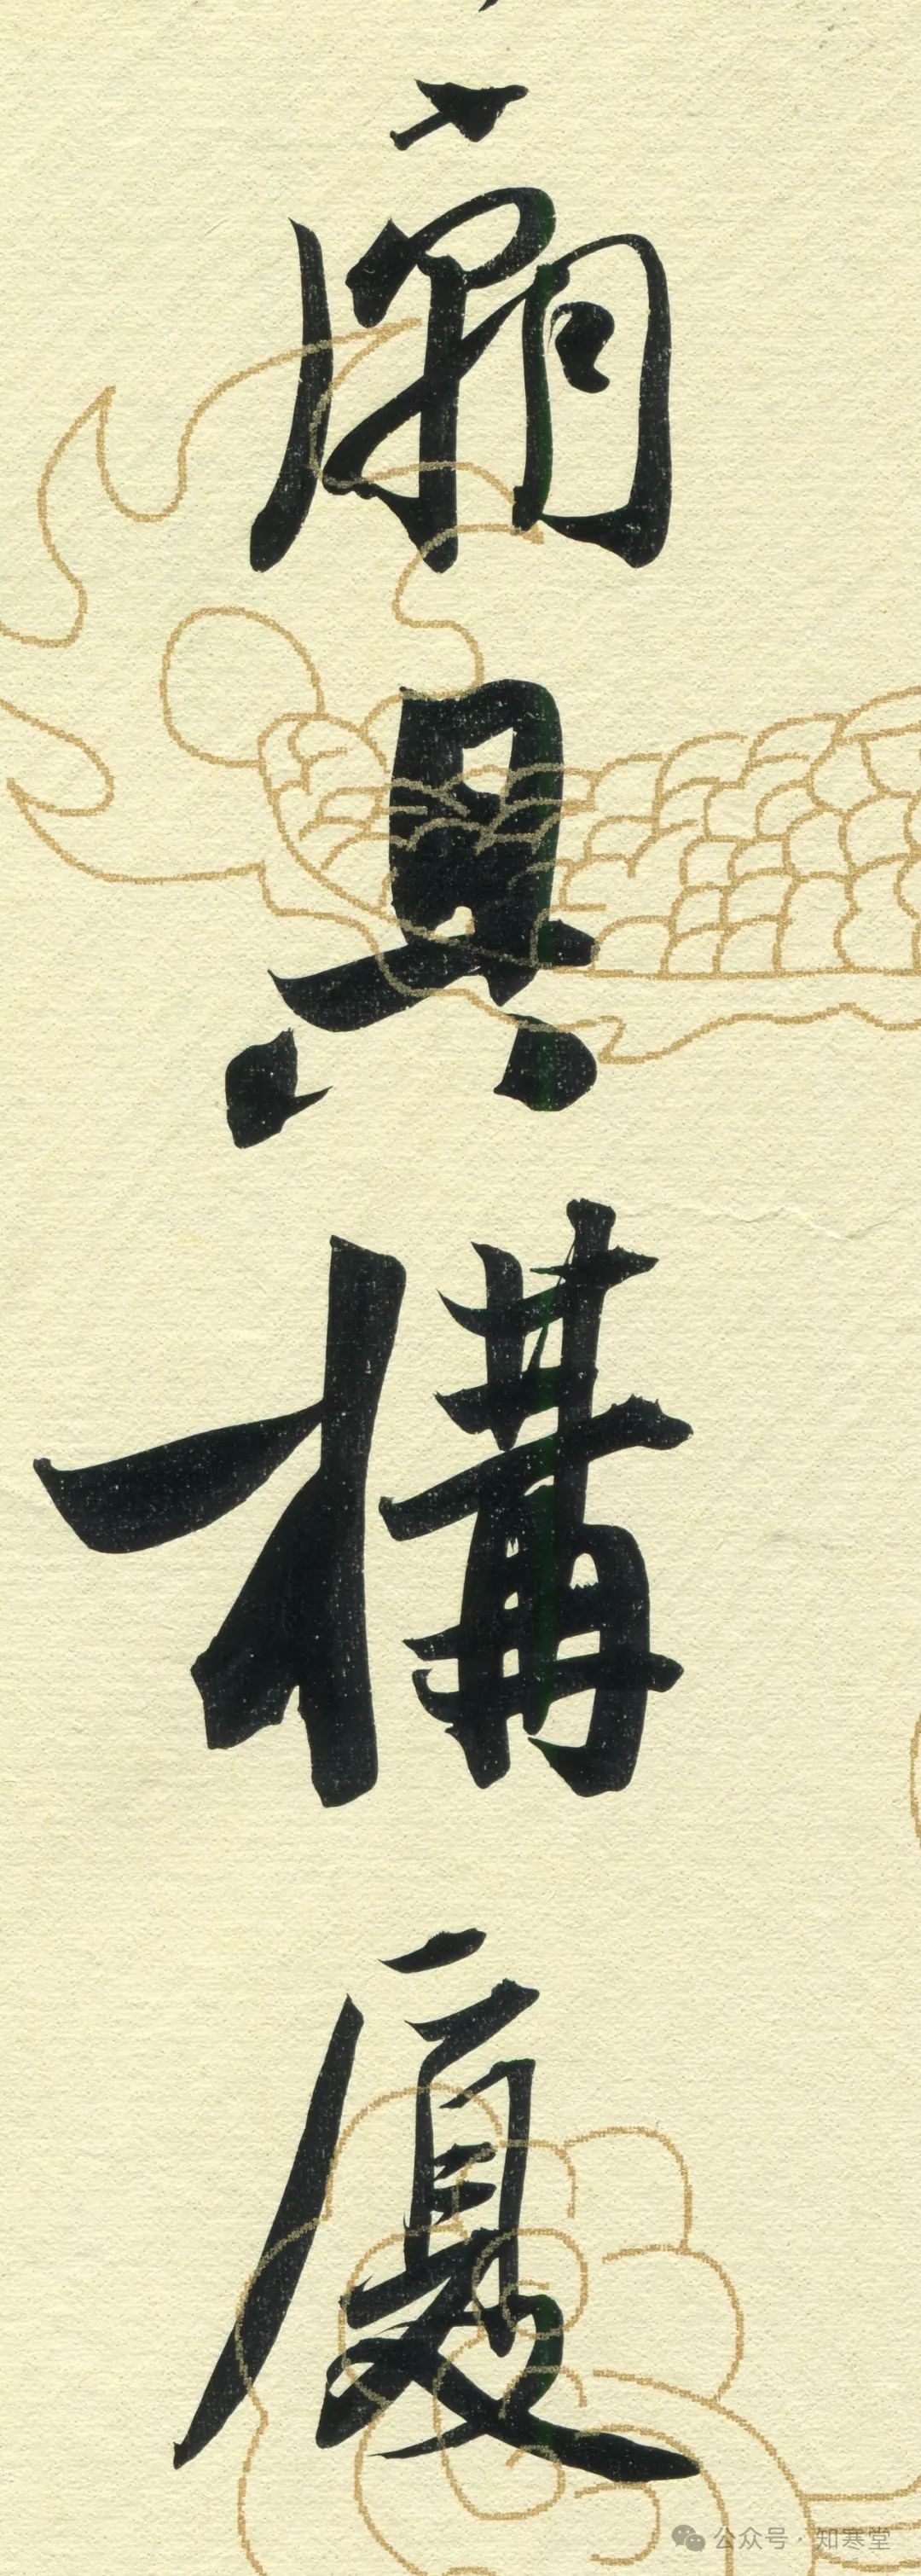 廟具構廈
公众号 · 知寒堂